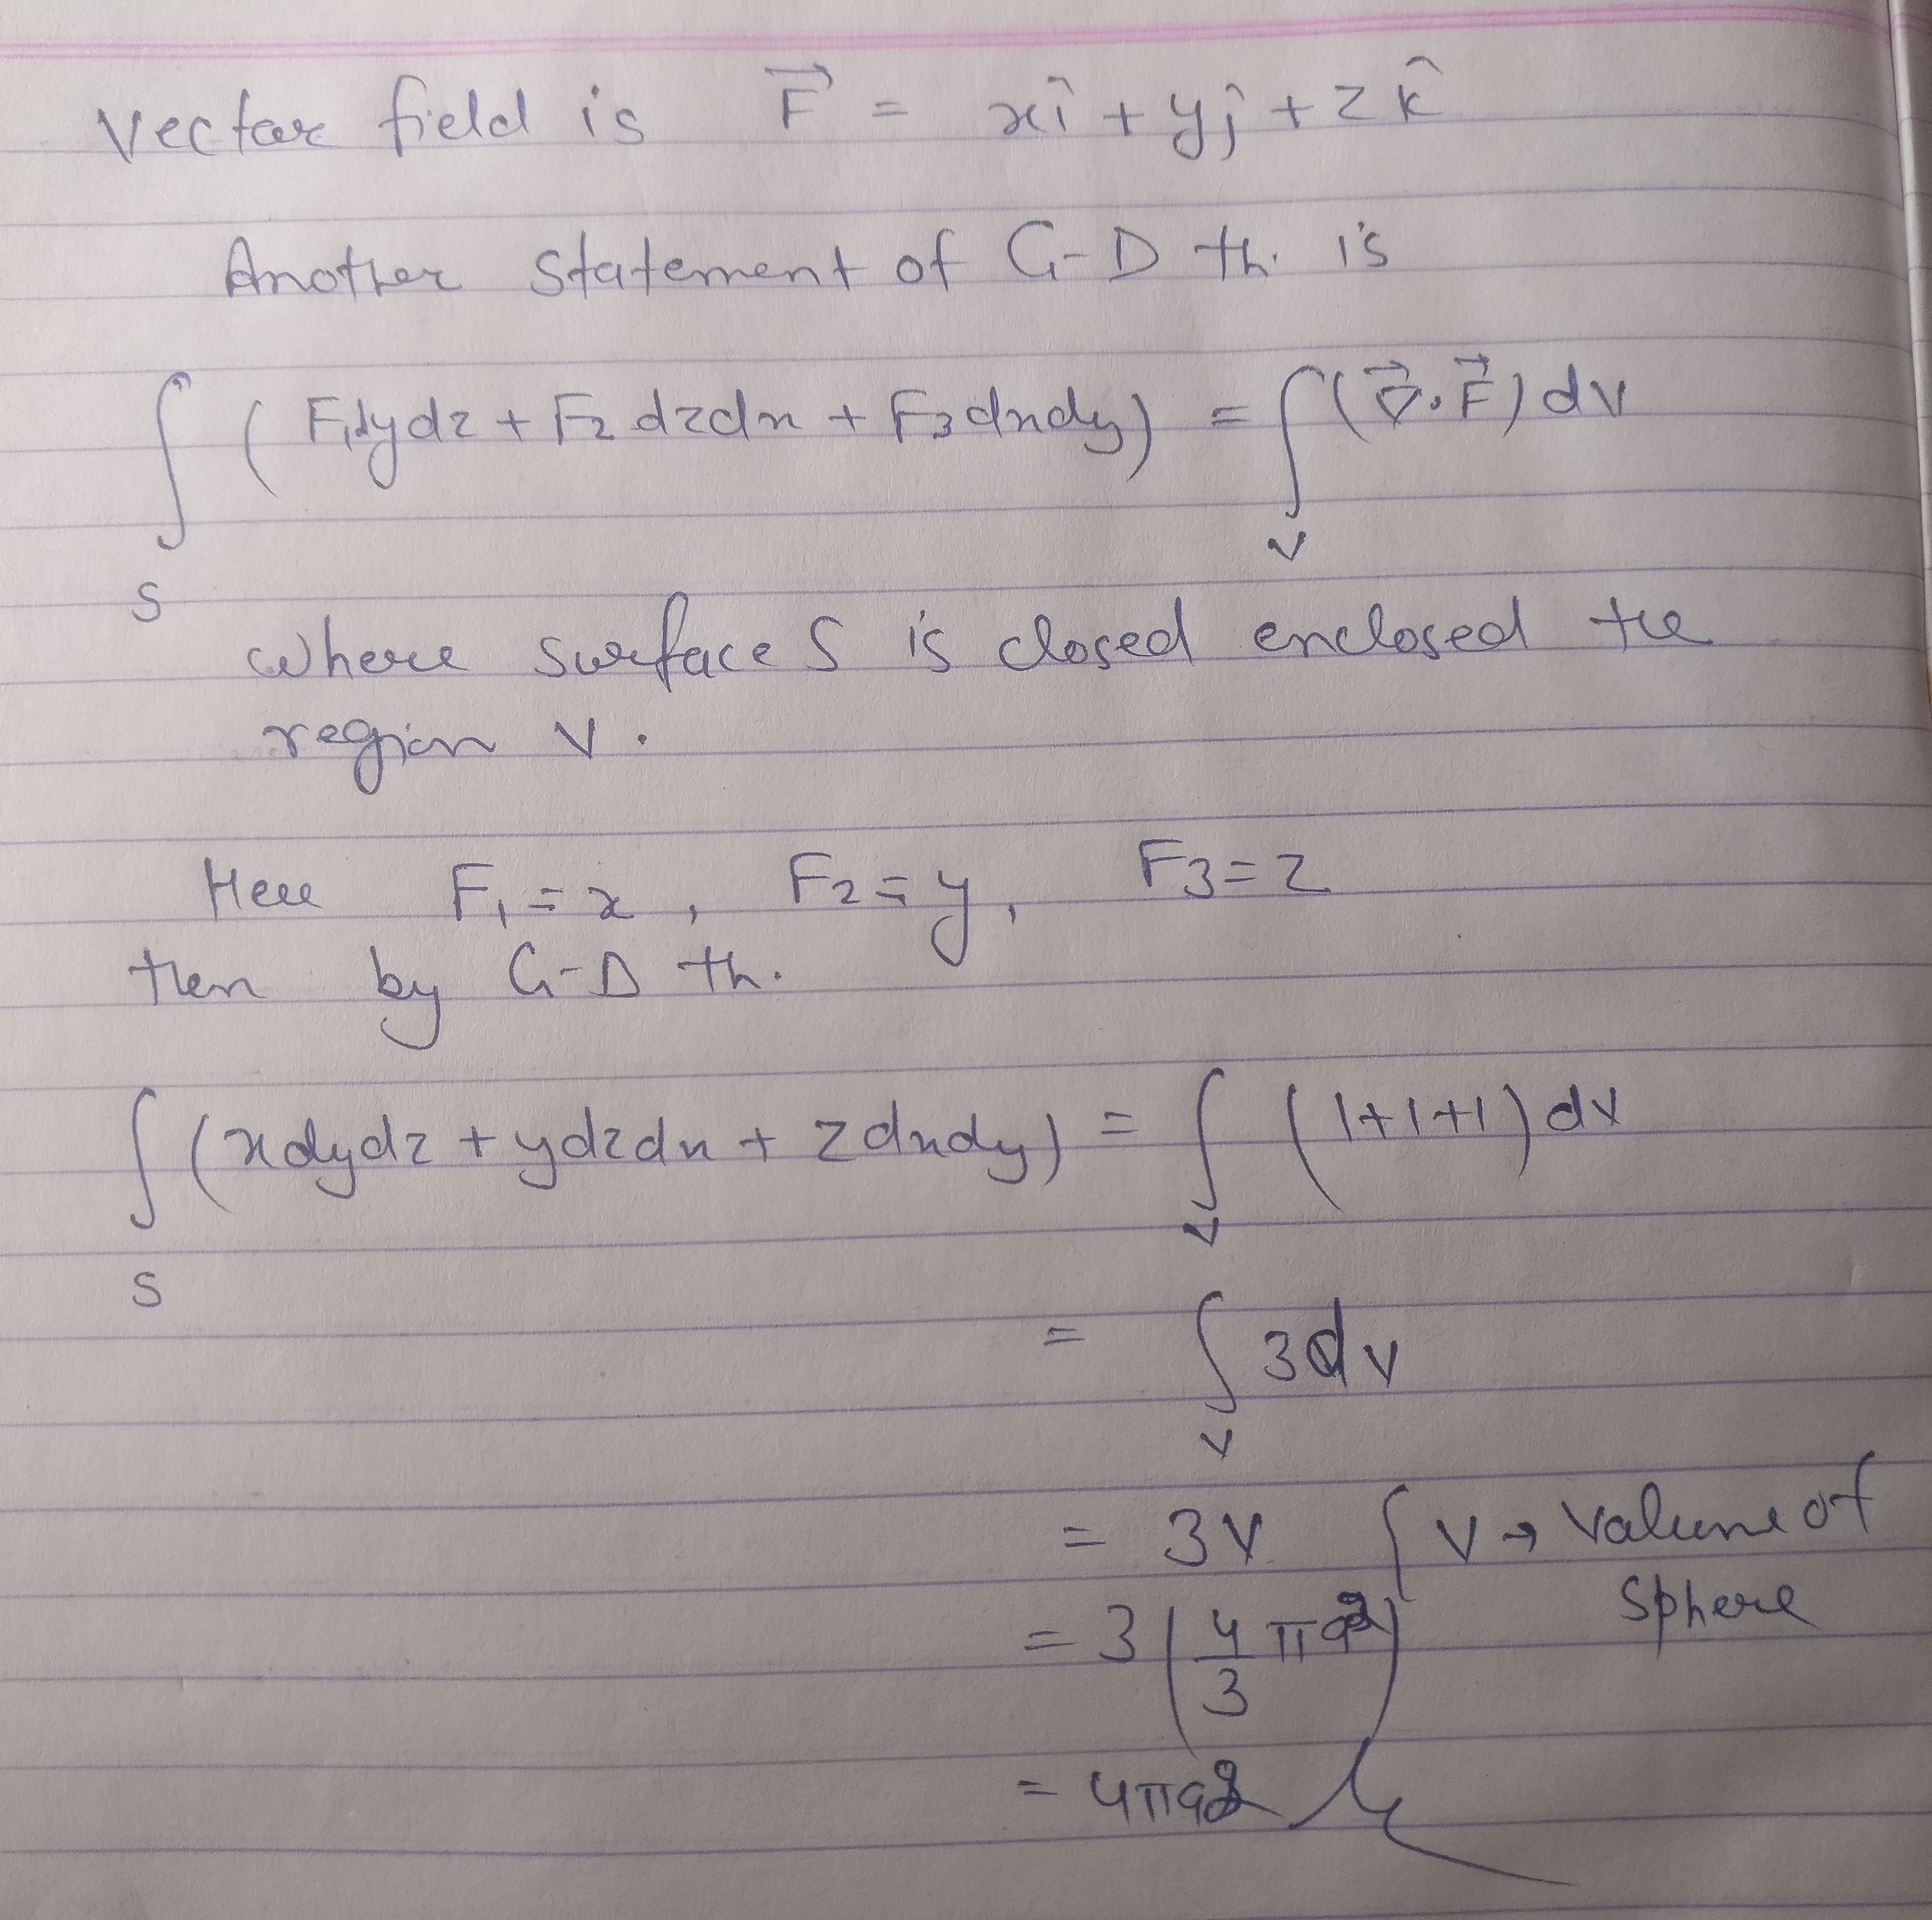 Vector field is F⃗ = xî + yĵ + zk̂
Another statement of G-D th. is
∫ ( F₁dydz + F₂ dzdx + F₃ dxdy ) = ∫ (∇⃗.F⃗) dv
S V
where surface S is closed enclosed the
region V.
Here F₁ = x , F₂ = y , F₃ = z
then by G-D th.
∫ (xdydz + ydzdx + zdxdy) = ∫ (1+1+1) dv
S V
= ∫ 3dv
V
= 3V { V → Volume of
Sphere
= 3 ( 4/3 πa³ )
= 4πa³